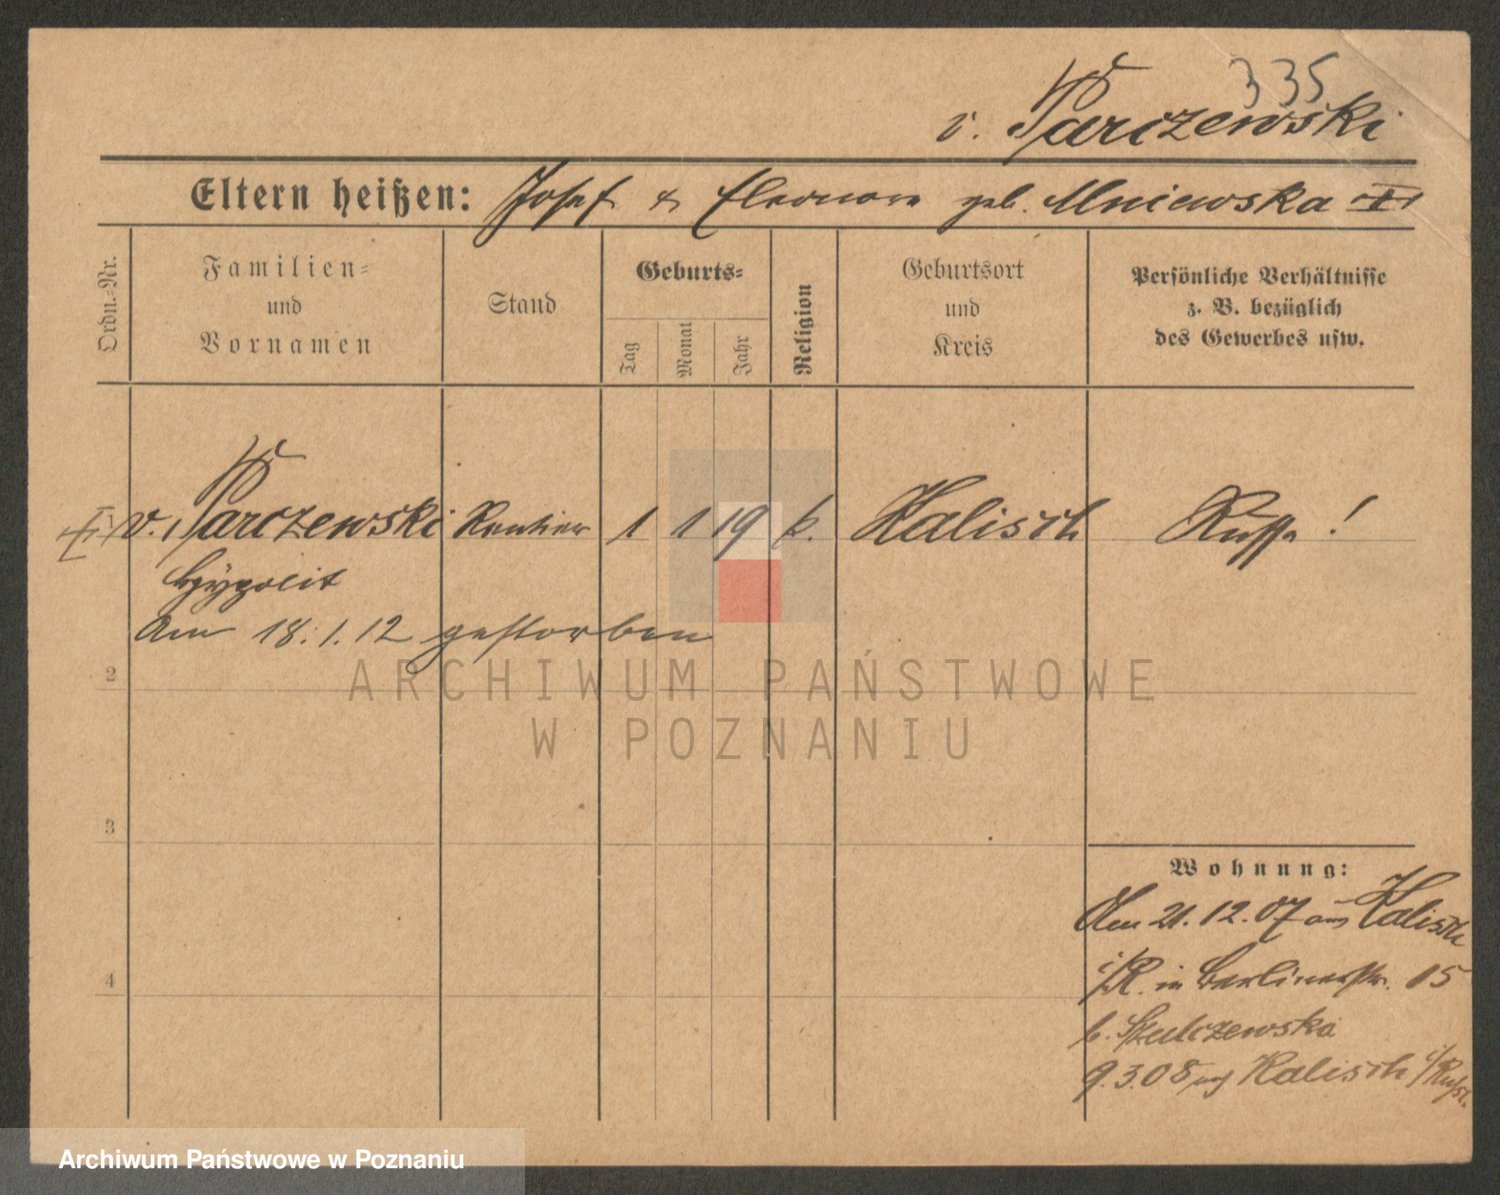 335
v. Parczewski
Eltern heißen: Josef & Eleonore geb. Mniewska
Ordn.-Nr.
Familien-
und
Vornamen
Stand
Geburts-
Tag
Monat
Jahr
Religion
Geburtsort
und
Kreis
Persönliche Verhältnisse
z. B. bezüglich
des Gewerbes usw.
v. Parczewski Rentier 1 1 19 k. Kalisch Russe!
Hypolit
Am 18.1.12 gestorben
2
ARCHIWUM PAŃSTWOWE
W POZNANIU
3
4
Wohnung:
Am 21.12.07 aus Kalisch
i/R. in Berlinerstr. 15
b. Szulczewska
9.3.08 nach Kalisch i/Russl.
Archiwum Państwowe w Poznaniu